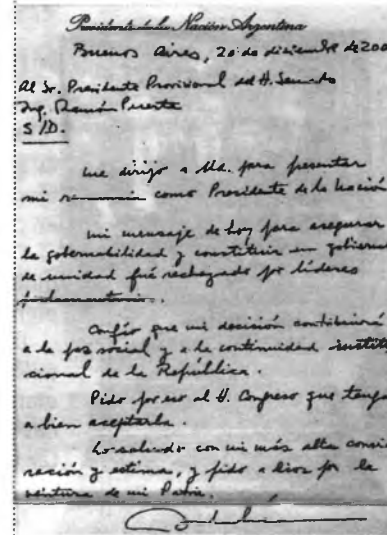 Presidente de la Nación Argentina
Buenos Aires, 20 de diciembre de 200
Al Sr. Presidente Provisional del H. Senado
Ing. Ramón Puerta
S/D.
me dirijo a Ud. para presentar
mi renuncia como Presidente de la Nación
mi mensaje de hoy para asegurar
la gobernabilidad y constituir un gobierno
de unidad fué rechazado por líderes
parlamentarios.
Confío que mi decisión contribuirá
a la paz social y a la continuidad institu
cional de la República.
Pido por eso al H. Congreso que tenga
a bien aceptarla.
Lo saludo con mi más alta consi
ración y estima, y pido a Dios por la
ventura de mi Patria.